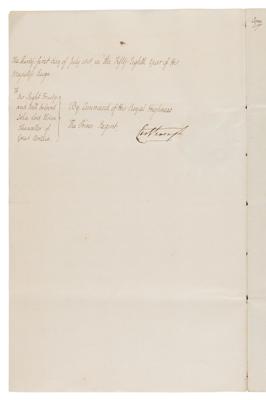 the thirty first day of July 1818 in the Fifty Eighth Year of His
Majesty's Reign
To
Our Right Trusty
and Well beloved
John Lord Eldon
Chancellor of
Great Britain
By Command of His Royal Highness
The Prince Regent.
Castlereagh